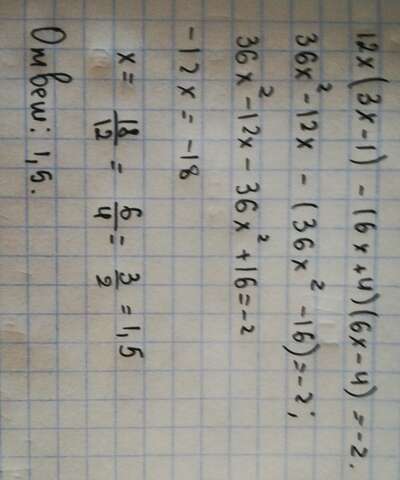 12x(3x-1) - (6x+4)(6x-4) = -2.
36x² - 12x - (36x² - 16) = -2;
36x² - 12x - 36x² + 16 = -2
-12x = -18
x = 18/12 = 6/4 = 3/2 = 1,5
Ответ: 1,5.